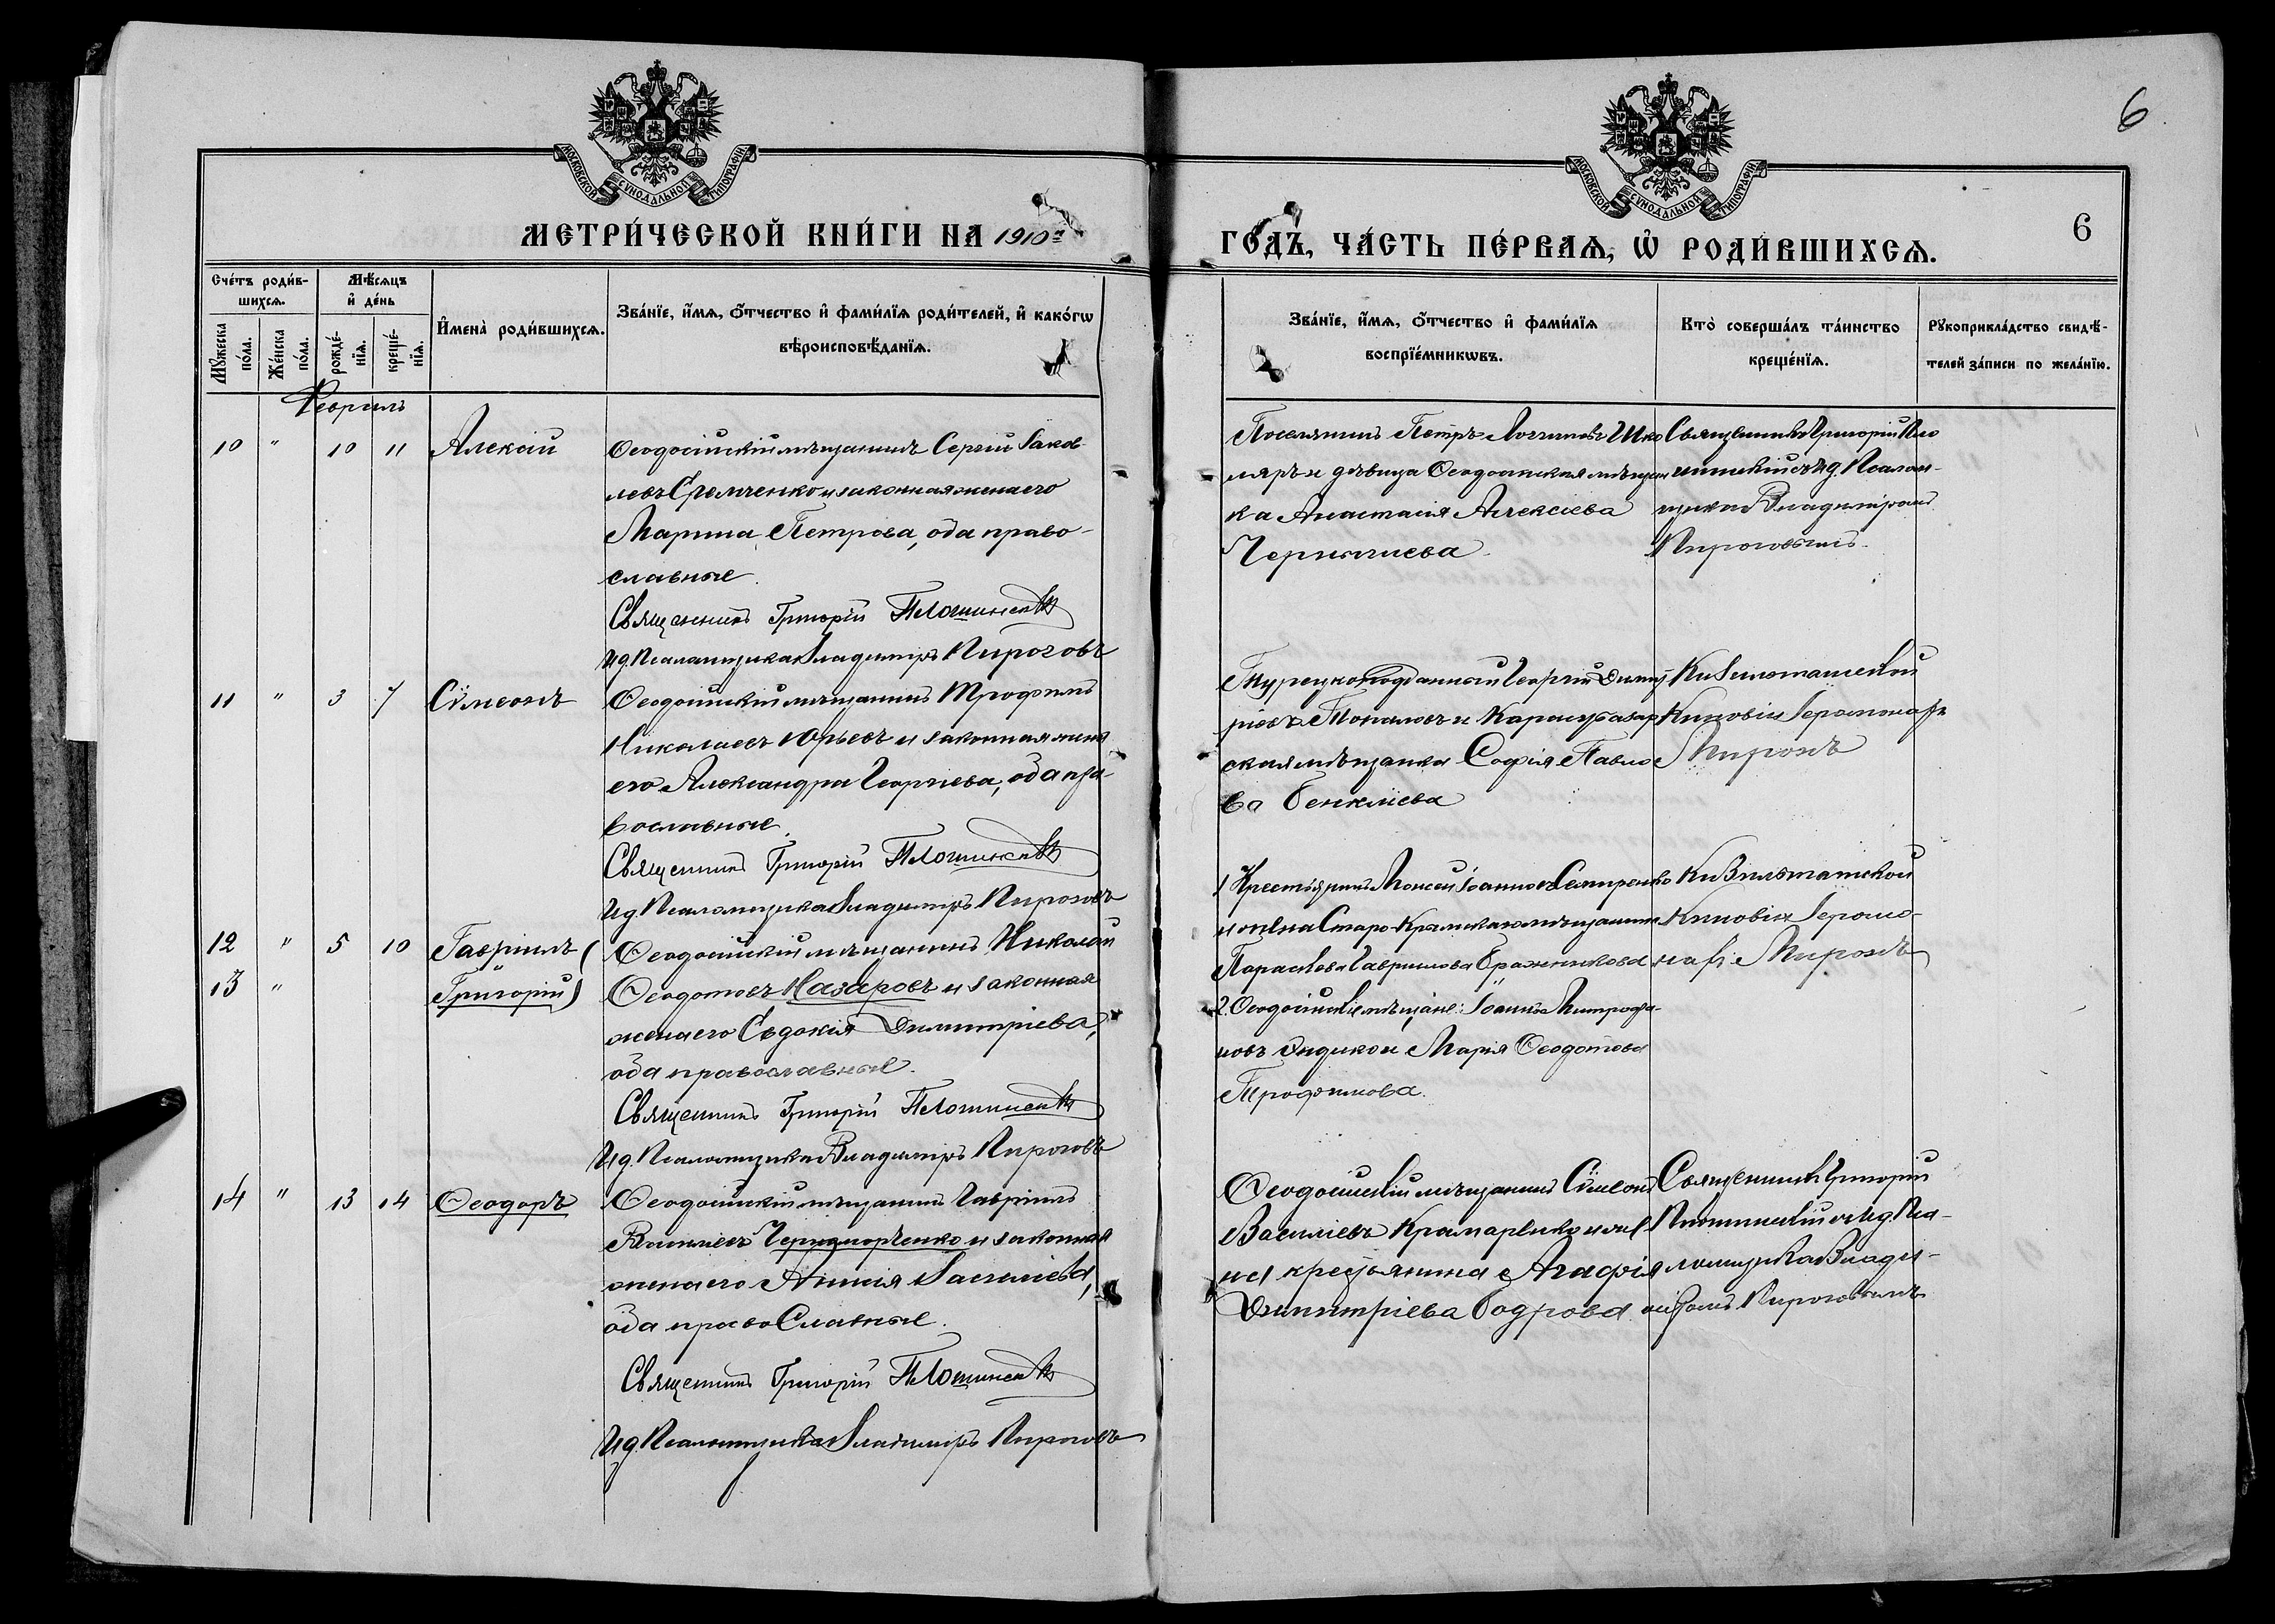 6
МОСКОВСКОЙ СѴНОДАЛЬНОЙ ТИПОГРАФІИ
МОСКОВСКОЙ СѴНОДАЛЬНОЙ ТИПОГРАФІИ
МЕТРИ́ЧЕСКОЙ КНИ́ГИ НА 1910й
ГО́ДЪ, ЧА́СТЬ ПЕ́РВАѦ, Ѡ҆ РОДИ́ВШИХСѦ.
6
Сче́тъ роди́в-
шихсѧ.
Мꙋ́жеска по́ла.
Же́нска по́ла.
Мѣ́сѧцъ
и҆ де́нь
рожде́-нїѧ.
креще́-нїѧ.
И҆мена̀ роди́вшихсѧ.
Зва́нїе, и҆́мѧ, ѻ҆́тчество и҆ фами́лїѧ роди́телей, и҆ како́гѡ
вѣроисповѣ́данїѧ.
Зва́нїе, и҆́мѧ, ѻ҆́тчество и҆ фами́лїѧ
воспрїе́мникѡвъ.
Кто̀ соверша́лъ та́инство
креще́нїѧ.
Рꙋкоприкла́дство свидѣ́-
телей за́писи по жела́нїю.
Февраль
10 " 10 11 Алексій
Ѳеодосійскій мѣщанинъ Сергій Іаков-
левъ Еремченко и законная жена его
Марина Петрова, оба право-
славные.
Священникъ Григорій Плошинскій
Ид. Псаломщика Владиміръ Пироговъ
Поселянинъ Петръ Логиновъ Шко
ляръ и дѣвица Ѳеодосійская мѣщан
ка Анастасія Алексіева
Чернышева
Священникъ Григорій Пло
шинскій съ Ид. Псалом-
щика Владиміромъ
Пироговымъ.
11 " 3 7 Сѵмеонъ
Ѳеодосійскій мѣщанинъ Трофимъ
Николаевъ Юрьевъ и законная жена
его Александра Георгіева, оба пра-
вославные.
Священникъ Григорій Плошинскій
Ид. Псаломщика Владиміръ Пироговъ
Турецкоподданный Георгій Димит
ріевъ Топаловъ и Карасубазар
ская мѣщанка Софія Павло
ва Бенклiева
Кизилташской
Киновіи Іеромонахъ
Миронъ
12 " 5 10 Гавріилъ (
13 " Григорій)
Ѳеодосійскій мѣщанинъ Николай
Ѳеодотовъ Назаровъ и законная
жена его Евдокія Димитріева,
оба православные.
Священникъ Григорій Плошинскій
Ид. Псаломщика Владиміръ Пироговъ
1 Крестьянинъ Моисей Іоанновъ Семиренко
и жена Старо-Крымскаго мѣщанина
Параскева Гавриилова Бражникова
2. Ѳеодосійскіе мѣщане: Іоаннъ Митрофа-
новъ Дидико и Марія Ѳеодотова
Трофимова.
Кизилташской
Киновіи Іеромо-
нахъ Миронъ
14 " 13 14 Ѳеодоръ
Ѳеодосійскій мѣщанинъ Гавріилъ
Василіевъ Черноморченко и законная
жена его Анисія Василіева,
оба православные.
Священникъ Григорій Плошинскій
Ид. Псаломщика Владиміръ Пироговъ
Ѳеодосійскій мѣщанинъ Сѵмеонъ
Василіевъ Крамаренко и же
на крестьянина Агафія
Димитріева Бодрова
Священникъ Григорій
Плошинскій съ Ид. Пса-
ломщика Влади-
міромъ Пироговымъ